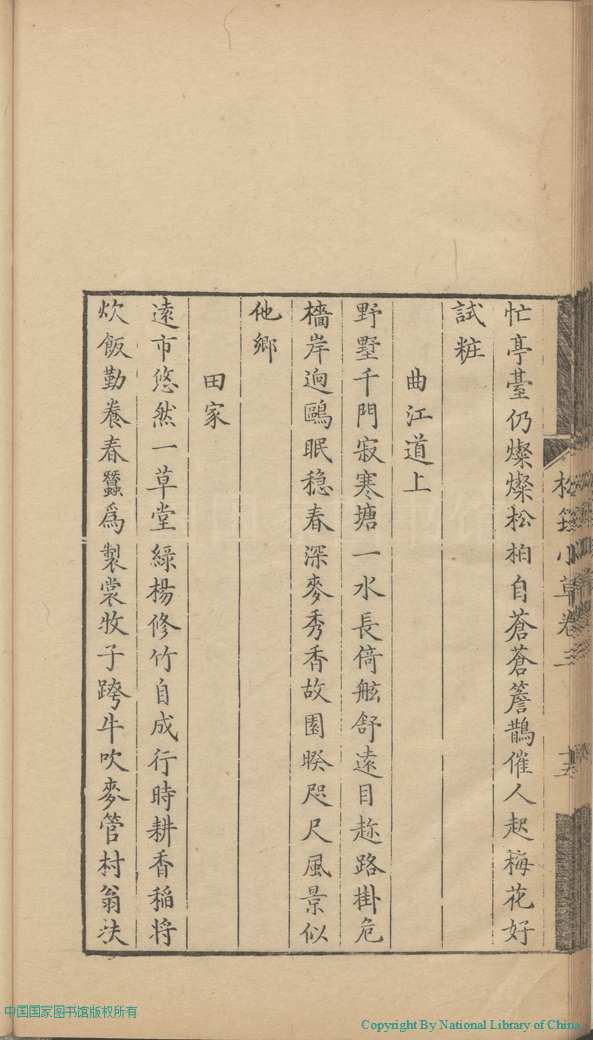 忙亭臺仍燦燦松柏自蒼蒼簷鵲催人起梅花好
試粧
曲江道上
野墅千門寂寒塘一水長倚舷舒遠目趂路掛危
檣岸迥鷗眠穏春深麥秀香故園暌咫尺風景似
他鄉
田家
遠市悠然一草堂綠楊修竹自成行時耕香稲將
炊飯勤養春蠶爲製裳牧子跨牛吹麥管村翁
小草卷
中国国家图书馆版权所有
Copyright By National Library of China